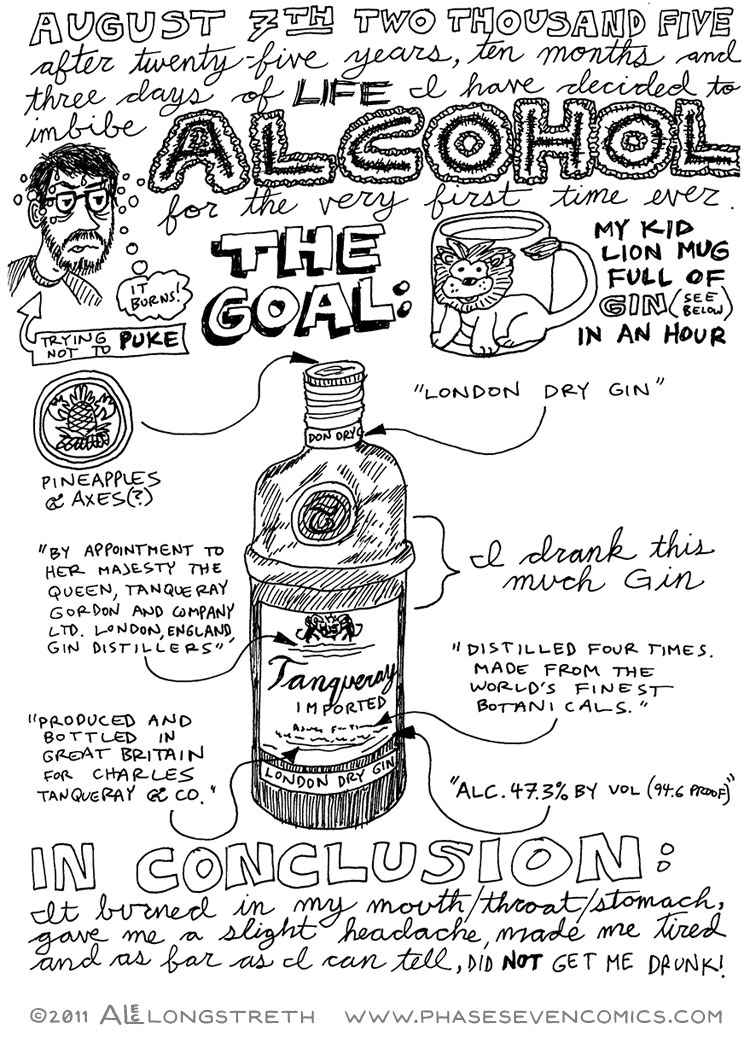 AUGUST 7TH TWO THOUSAND FIVE
after twenty-five years, ten months and
three days of LIFE I have decided to
imbibe ALCOHOL
for the very first time ever.
IT
BURNS!
TRYING
NOT TO PUKE
THE
GOAL:
MY KID
LION MUG
FULL OF
GIN (SEE
BELOW)
IN AN HOUR
PINEAPPLES
& AXES(?)
"LONDON DRY GIN"
DON DRY G
T
I drank this
much Gin
"BY APPOINTMENT TO
HER MAJESTY THE
QUEEN, TANQUERAY
GORDON AND COMPANY
LTD. LONDON, ENGLAND,
GIN DISTILLERS"
"DISTILLED FOUR TIMES.
MADE FROM THE
WORLD'S FINEST
BOTANICALS."
Tanqueray
IMPORTED
LONDON DRY GIN
"PRODUCED AND
BOTTLED IN
GREAT BRITAIN
FOR CHARLES
TANQUERAY & CO."
"ALC. 47.3% BY VOL (94.6 PROOF)"
IN CONCLUSION:
It burned in my mouth/throat/stomach,
gave me a slight headache, made me tired
and as far as I can tell, DID NOT GET ME DRUNK!
©2011 ALEC LONGSTRETH WWW.PHASESEVENCOMICS.COM